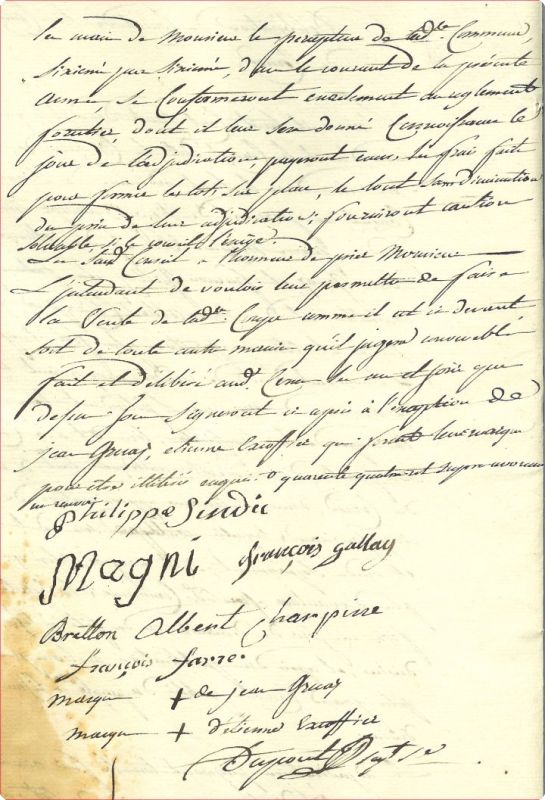 les mains de Monsieur le percepteur de ladte Commune
sixieme par sixieme, dans le courant de la présente
année, se Conformeront exactement au reglement
forestier dont il leur sera donné Connoissance le
jour de l'adjudication, payeront encor les frais fait
pour former les lots sur place, le tout sans diminution
du prix de leur adjudication; fourniront caution
solvable si le conseil l'éxige.
Le Sud Conseil a l'honneur de prier Monsieur
L'jntendant de vouloir leur permettre de faire
la Vente de ladte Coupe comme il est ci devant
soit de toute autre maniere qu'il jugera convenable
fait et déliberé aud. les an et jour que
dessus Signeront ci après à l'exception de
jean Gruaz, etienne Excoffier qui font leur marque
pour être illitérés requis quarente quatre
en renvoi
philippe Sindic
Magni françois gallay
Bretton Albert Champire
françois farre
marque + de jean Gruaz
marque + d'etienne Excoffier
Dupont